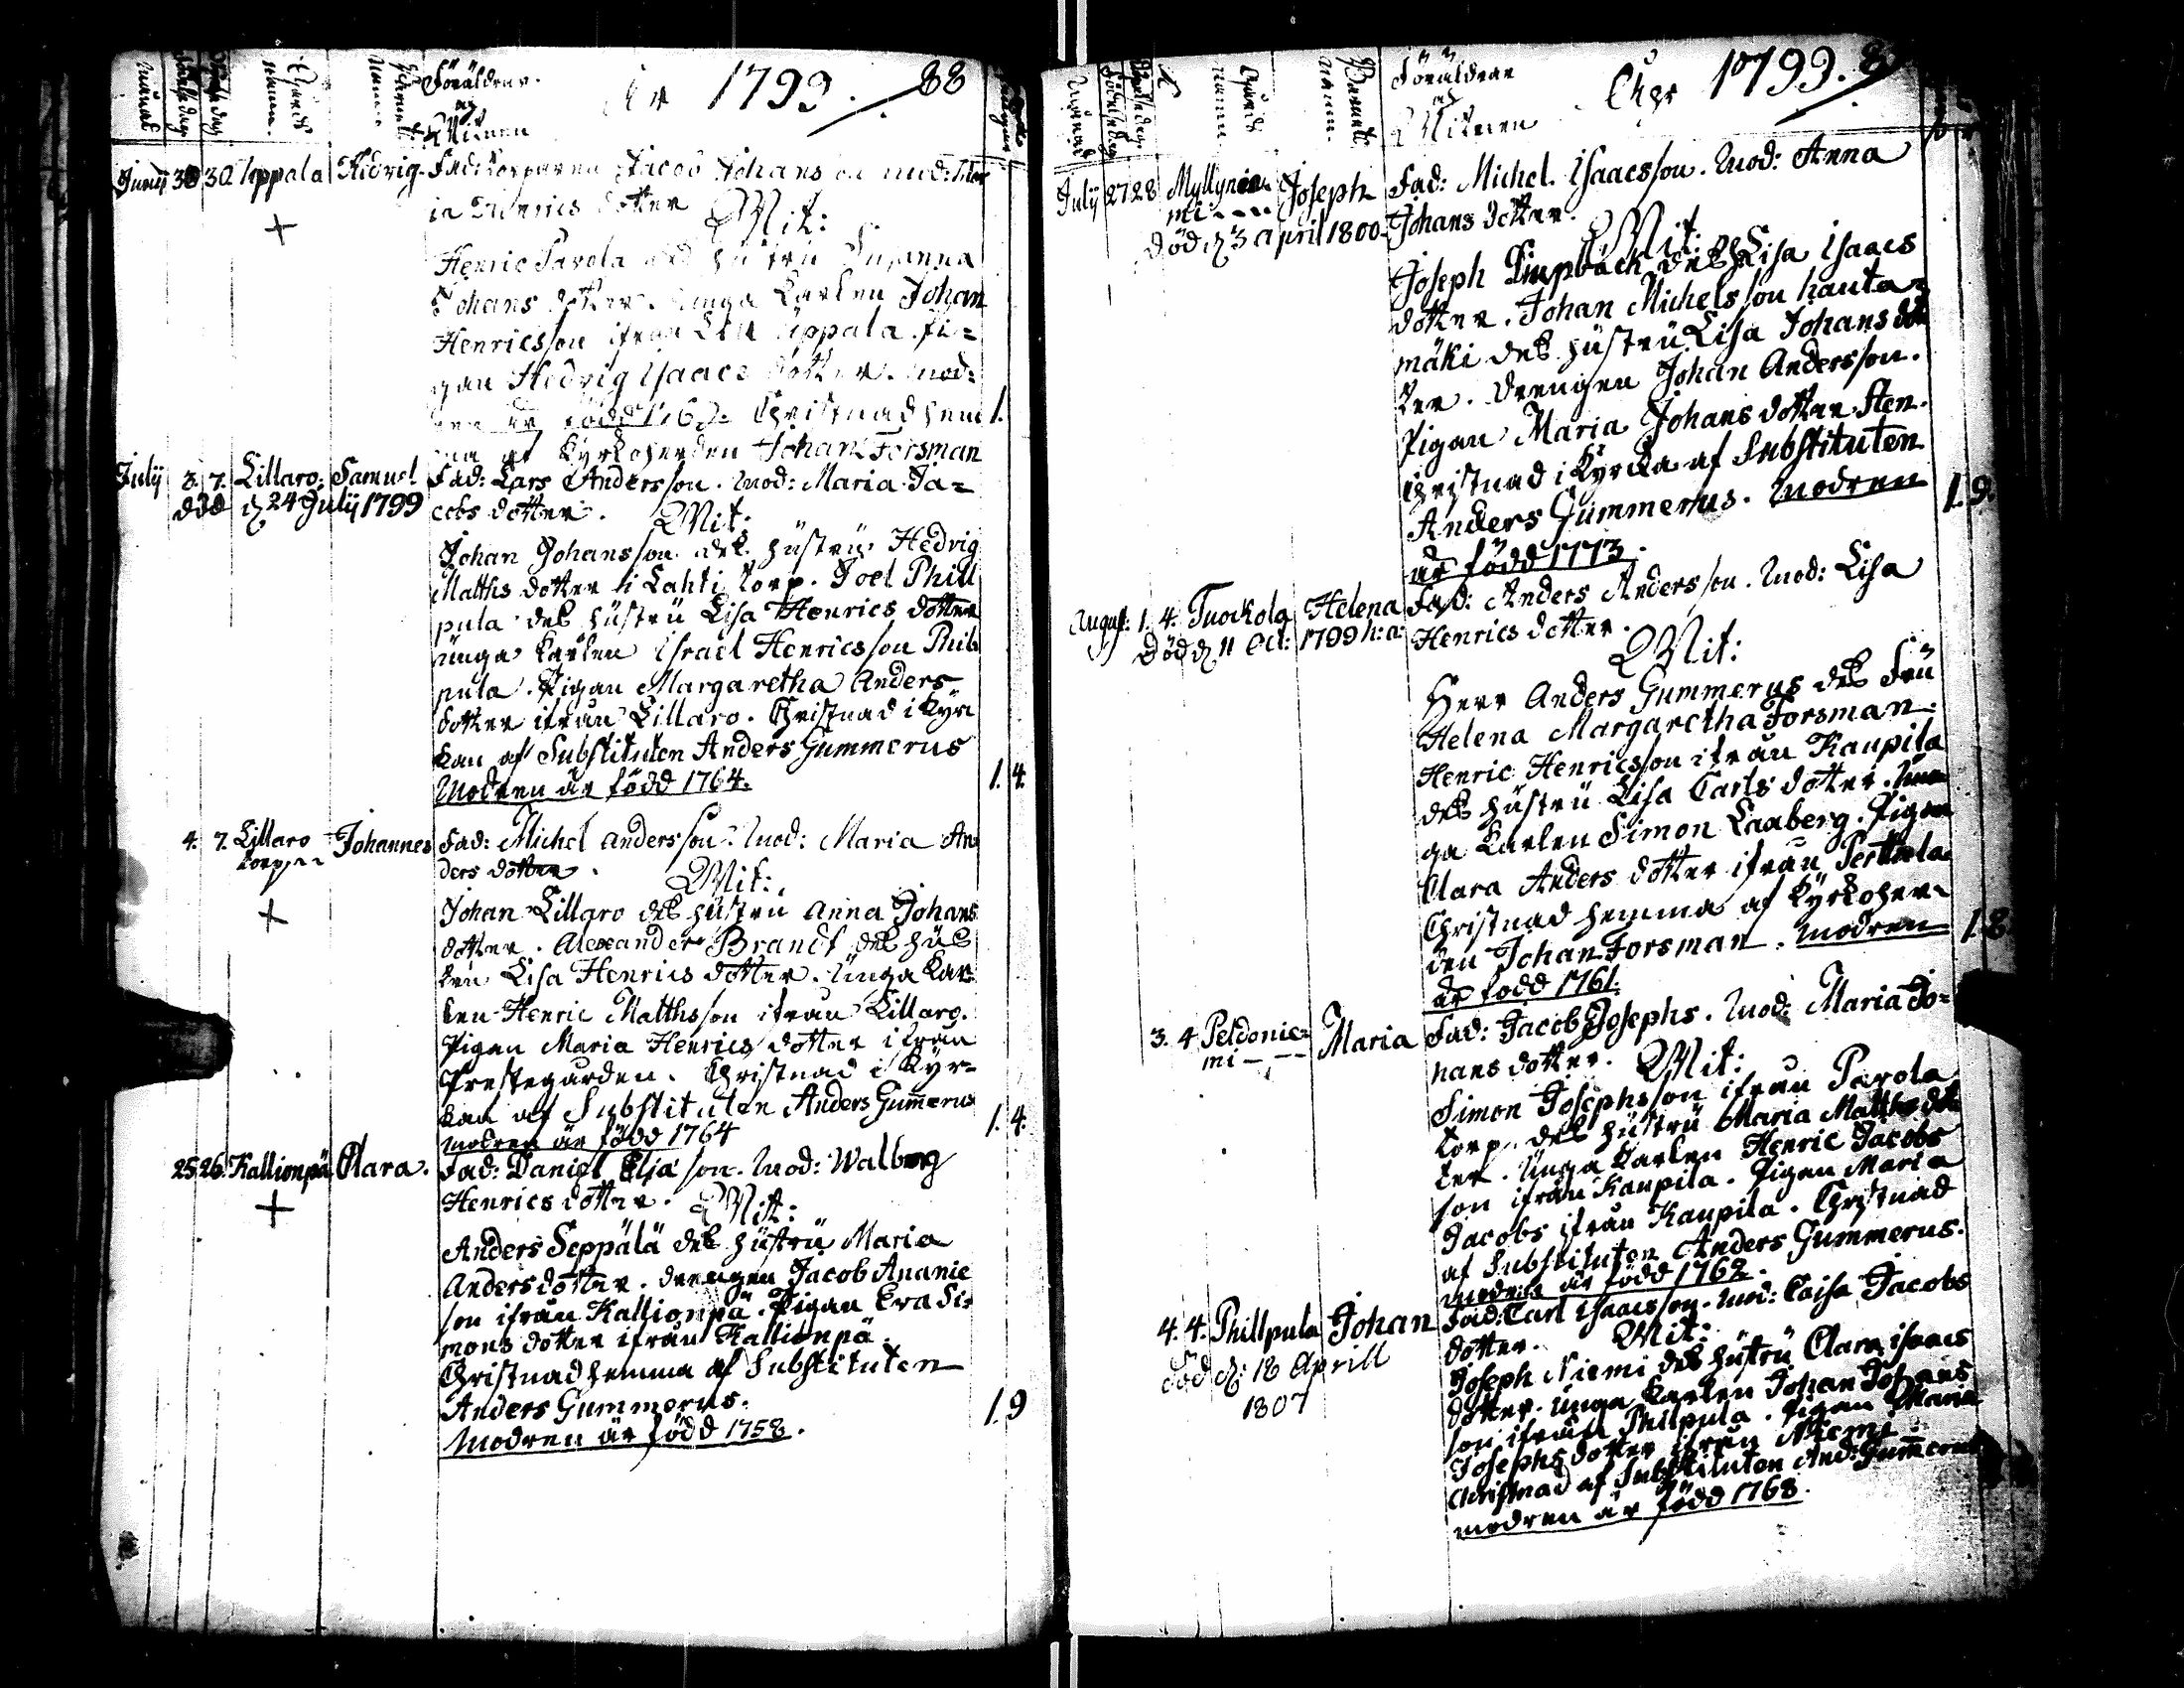 Månad
Födelsedag
Christndag
Gårds namn.
Barnets Namn
Föräldrar.
och
Witnen
År 1799.
88
Junij 30 30 Uppala Hedvig. Fad: Torparen Jacob Johansson mod: Ma
ia Henrics dotter
Wit:
+
Henric Parola des hustru Susanna
Johans dotter. unga Karlen Johan
Henricsson ifrån Uppala. Pi=
gan Hedvig Isaacs dotter. Mod=
ren är född 176 Christnad hem 1.
ma af Kyrkoherden Johan Forsman
Julij 3. 7. Lillaro: Samuel Fad: Lars Andersson. Mod: Maria Ja=
död d. 24 Julij 1799 cobs dotter. Wit:
Johan Johansson des hustru Hedvig
Matths dotter i Lahti torp. Joel Phill
pula des hustru Lisa Henrics dotter
unga Karlen Israel Henricsson Phil
pula. Pigan Margaretha Anders
dotter ifrån Lillaro. Christnad i Kyr
kan af Substituten Anders Gummerus
Modren är född 1764. 1. 4.
4. 7. Lillaro Johannes Fad: Michel Andersson. Mod: Maria An
torp ders dotter. Wit:
+
Johan Lillaro des hustru Anna Johans
dotter. Alexander Brandt des hus
tru Lisa Henrics dotter. Unga Kar
len Henric Matthsson ifrån Lillaro.
Pigan Maria Henrics dotter ifrån
Prestegården. Christnad i Kyr=
kan af Substituten Anders Gummerus
modren är född 1764 1. 4.
25 26 Kallionpä Clara. Fad: Daniel Eliasson. Mod: Walborg
Henrics dotter. Wit:
+
Anders Seppälä des hustru Maria
Andersdotter. drengen Jacob Ananie
son ifrån Kallionpä. Pigan Eva Si=
mons dotter ifrån Kallionpä.
Christnad hemma af Substituten
Anders Gummerus. 1. 9
Modren är född 1758.
Månad
Födelsedag
Gårds namn
Barnets namn.
Föräldrar
och
Witnen
År 1799.
Julij 27 28 Myllynie= Joseph Fad: Michel Isaacsson. Mod: Anna
mi - - - Johans dotter.
död d. 3 April 1800. Wit:
Joseph Limpback des h. Lisa Isaacs
dotter. Johan Michelsson hauta=
mäki des hustru Lisa Johans dot
ter. Drengen Johan Andersson.
Pigan Maria Johans dotter Hen.
Christnad i Kyrka af Substituten
Anders Gummerus. Modren 1. 9.
är född 1773.
August: 1. 4. Tuockola Helena Fad: Anders Andersson. Mod: Lisa
Död d 11 Oct: 1799 h:a: Henrics dotter.
Wit:
Herr Anders Gummerus des Fru
Helena Margaretha Forsman.
Henric Henricsson ifrån Kaupila
des hustru Lisa Carls dotter. Un
ga Karlen Simon Laxberg. Pigan
Clara Anders dotter ifrån Perttula
Christnad hemma af Kyrkoher=
den Johan Forsman. Modren 1. 8.
är född 1761.
3. 4 Peldonie= Maria Fad: Jacob Josephs. Mod: Maria Jo=
mi - - - hans dotter. Wit:
Simon Josephsson ifrån Parola
torp. des hustru Maria Matths dot
ter. Unga Karlen Henric Jacobs
son ifrån Kaupila. Pigan Maria
Jacobs ifrån Kaupila. Christnad
af Substituten Anders Gummerus.
modren är född 1762.
4. 4. Phillpula Johan Fad: Carl Isaacsson. Mod: Caisa Jacobs
död d: 18 Aprill dotter. Wit:
1807
Joseph Niemi des hustru Clara Isaacs
dotter. unga Karlen Johan Johans
son ifrån Philpula. Pigan Maria
Josephs dotter ifrån Niemi
Christnad af Substituten And: Gummerus
modren är född 1768.